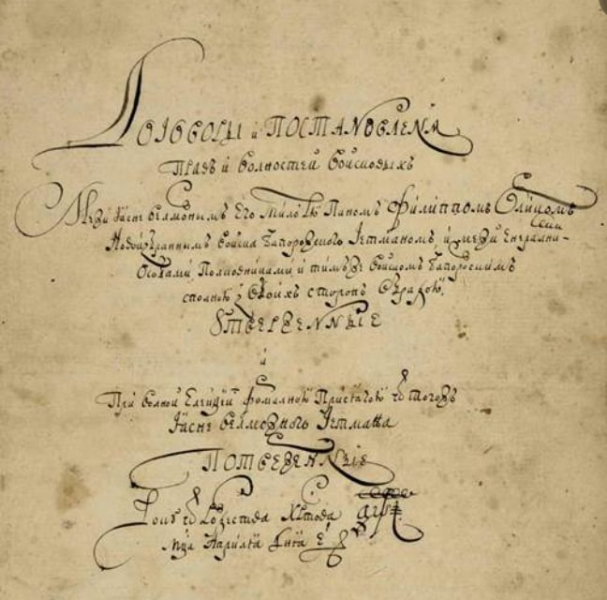 Договоры и постановленѧ
Правъ и волностей войсковыхъ
Межи Ясне велможнымъ Его Милостю Паномъ Филиппомъ Орликомъ
Новоизбраннимъ войска Запорозкого Гетманомъ, и межи Енералними
Особами, Полковниками и тимъжъ войскомъ Запорозскимъ
сполною з обоихъ сторон обрадою.
Утвержденные
и
При волной Елекціи формалною Присягою от тогожъ
Ясне велможного Гетмана
Потверженные
Року от Рожества Христова
Мца Априля дня е҃